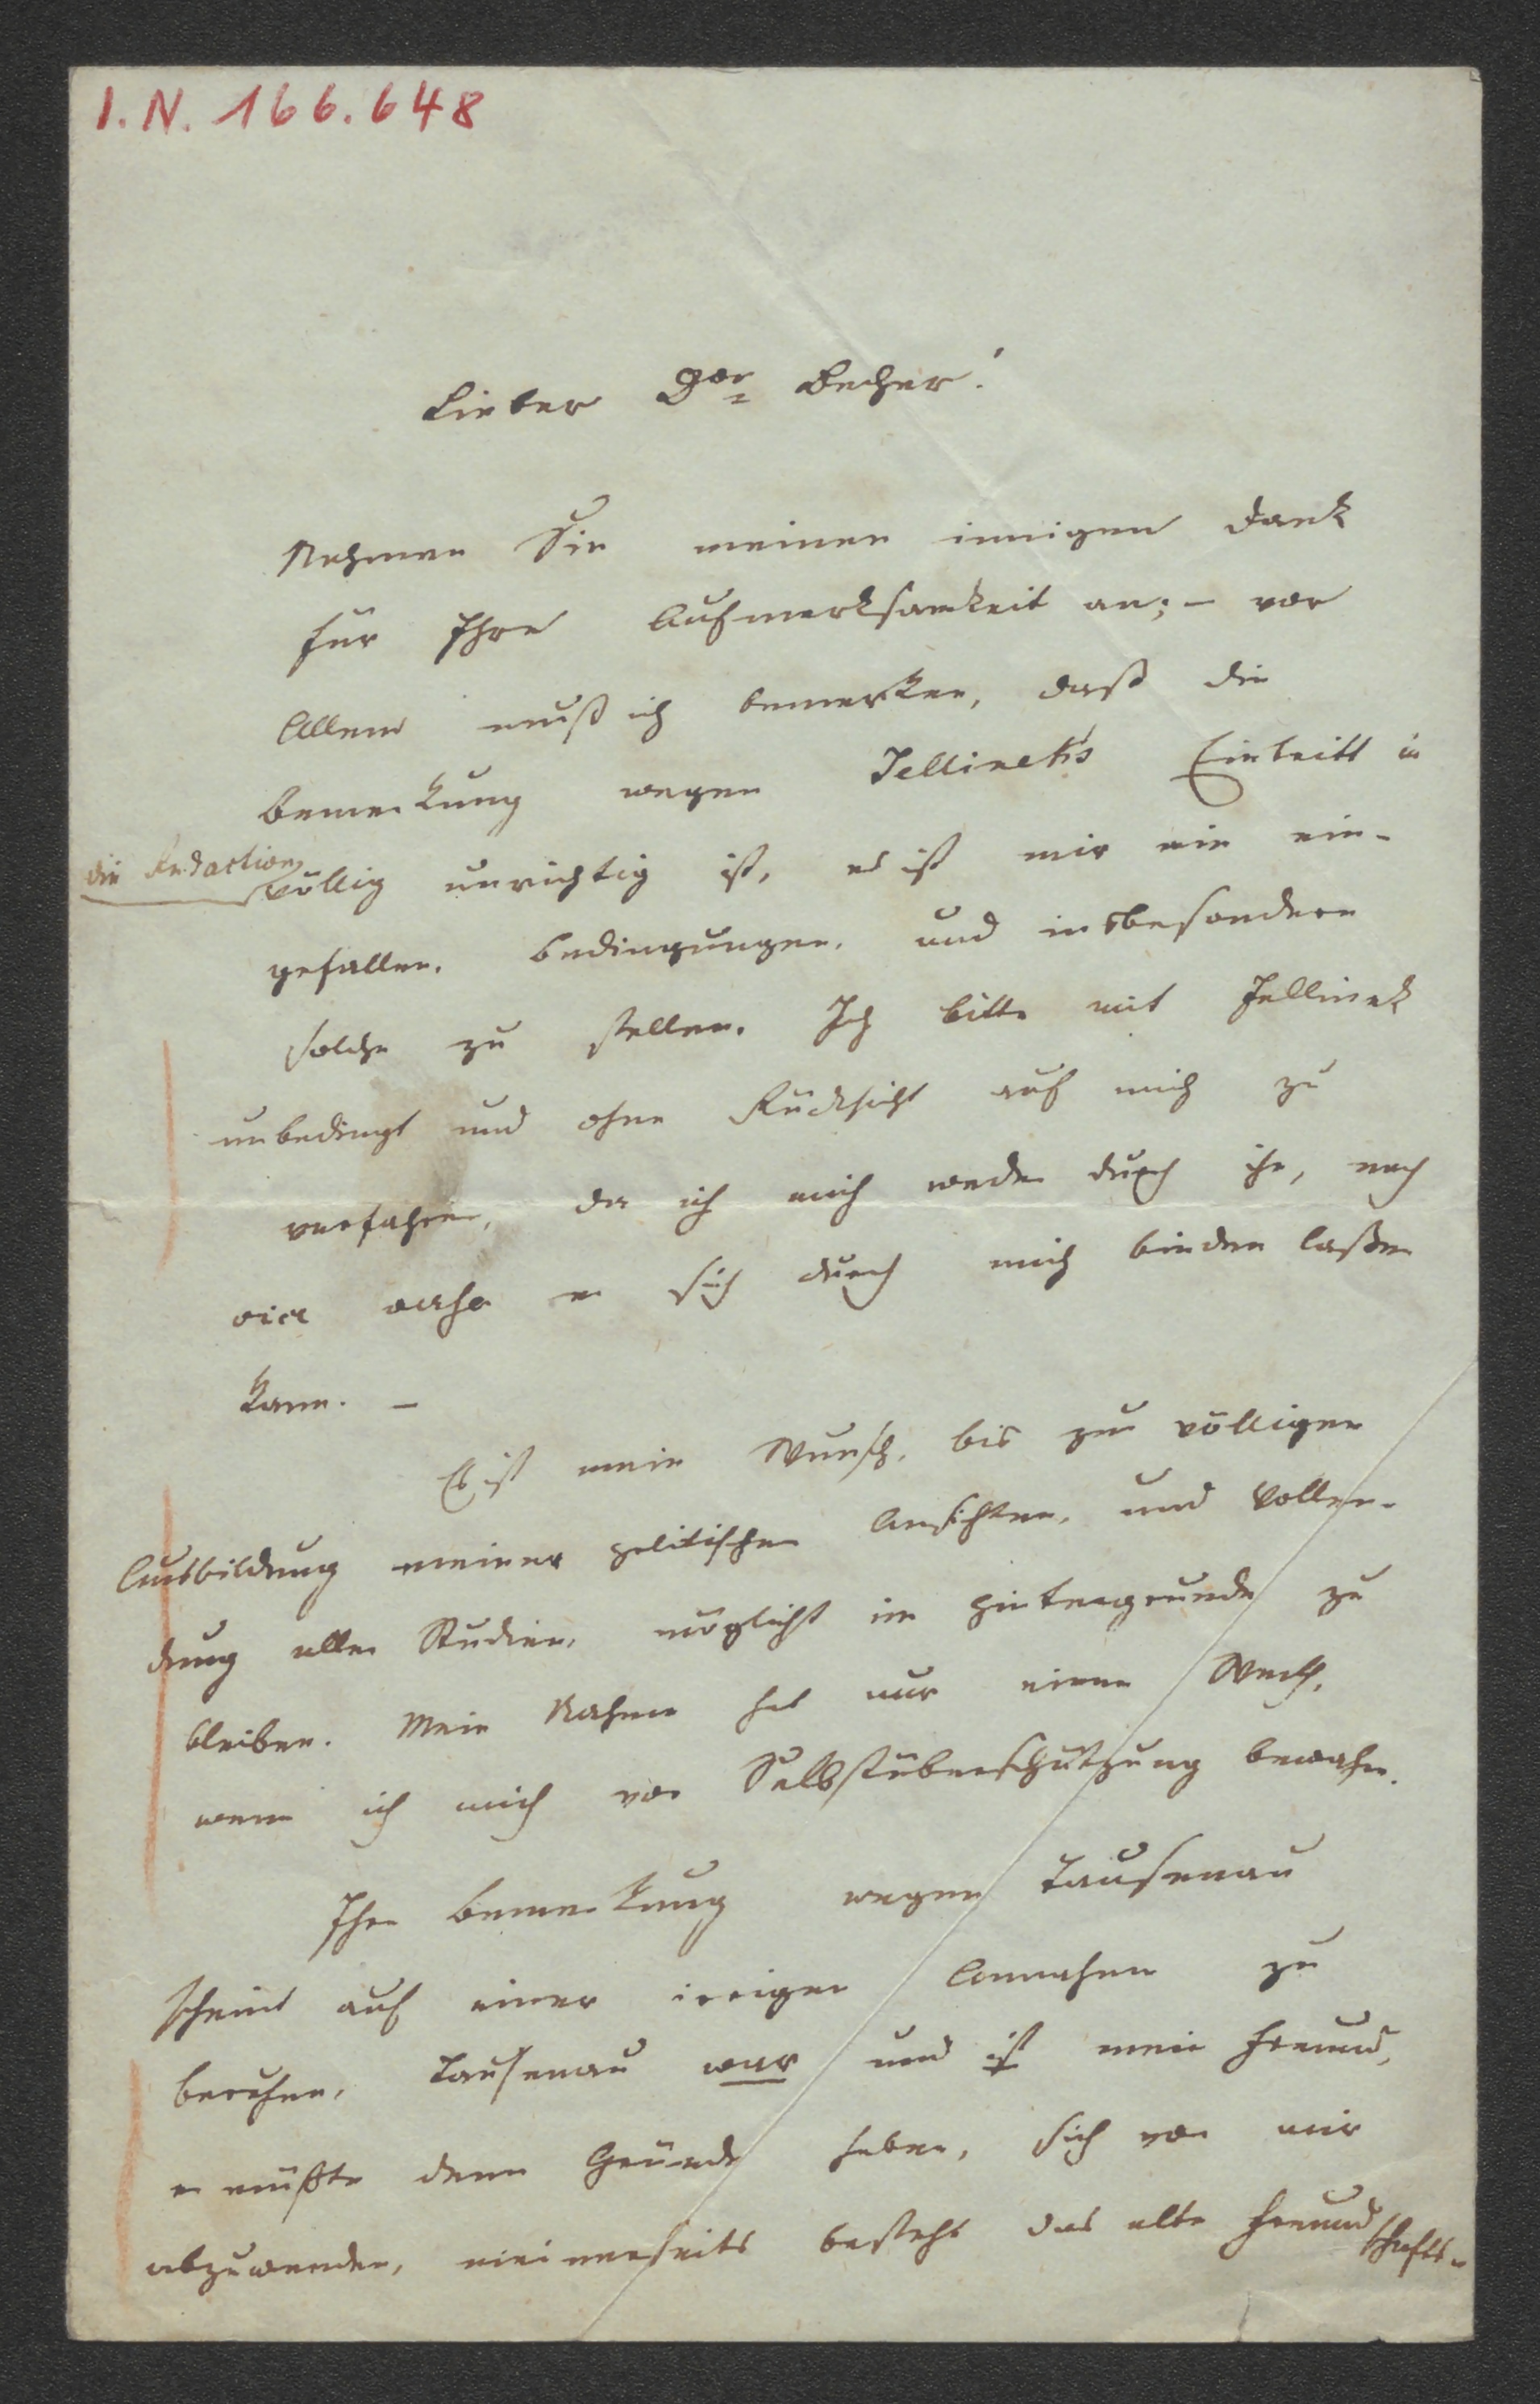 I.N. 166.648
Lieber Dor Becher!
Nehmen Sie meinen innigen Dank
für Ihre Aufmerksamkeit an; – vor
Allem muß ich bemerken, daß die
Bemerkung wegen Jellinek's Eintritt in
die Redaction völlig unrichtig ist, es ist mir nie ein-
gefallen, Bedingungen, und insbesondere
solche zu stellen. Ich bitte mit Jellinek
unbedingt und ohne Rücksicht auf mich zu
verfahren, da ich mich weder durch ihn, noch
er sich durch mich binden laßen
kann. –
Es ist mein Wunsch, bis zur völligen
Ausbildung meiner politischen Ansichten, und Vollen-
dung aller Studien, möglichst im Hintergrunde zu
bleiben. Mein Nahme hat nur einen Werth,
wenn ich mich vor Selbstüberschätzung bewahre.
Ihre Bemerkung wegen Tausenau
scheint auf einer irrigen Annahme zu
beruhen, Tausenau war und ist mein Freund,
er müßte denn Gründe haben, sich von mir
abzuwenden, meinerseits besteht das alte Freundschafts-